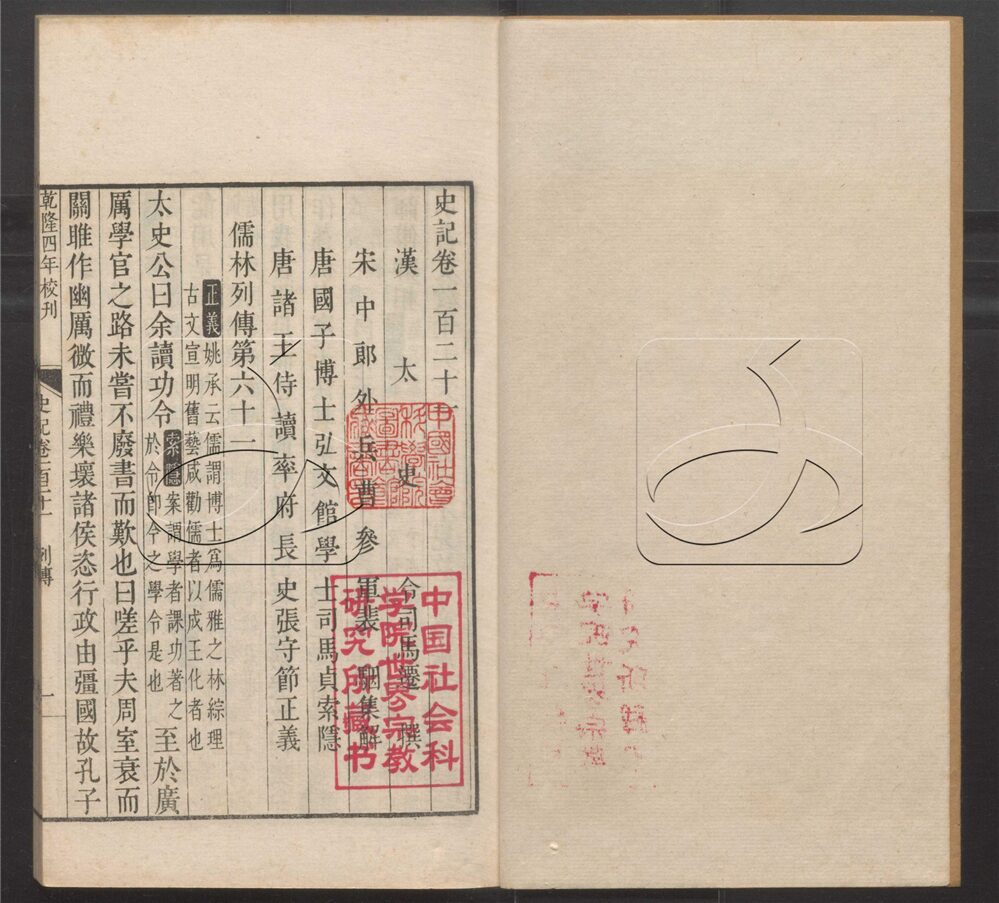 史記卷一百二十一
漢太史令司馬遷撰
宋中郎外兵曹參軍裴駰集解
唐國子博士弘文館學士司馬貞索隱
唐諸王侍讀率府長史張守節正義
儒林列傳第六十一
正義姚承云儒謂博士爲儒雅之林綜理
古文宣明舊藝咸勸儒者以成王化者也
太史公曰余讀功令
索隱案謂學者課功著之
於令卽今之學令是也
至於廣
厲學官之路未嘗不廢書而歎也曰嗟乎夫周室衰而
關雎作幽厲微而禮樂壞諸侯恣行政由彊國故孔子
乾隆四年校刊
史記卷一百二十一
列傳
一
中國社會
科學院
圖書館
藏書
中国社会科
学院世界宗教
研究所藏书